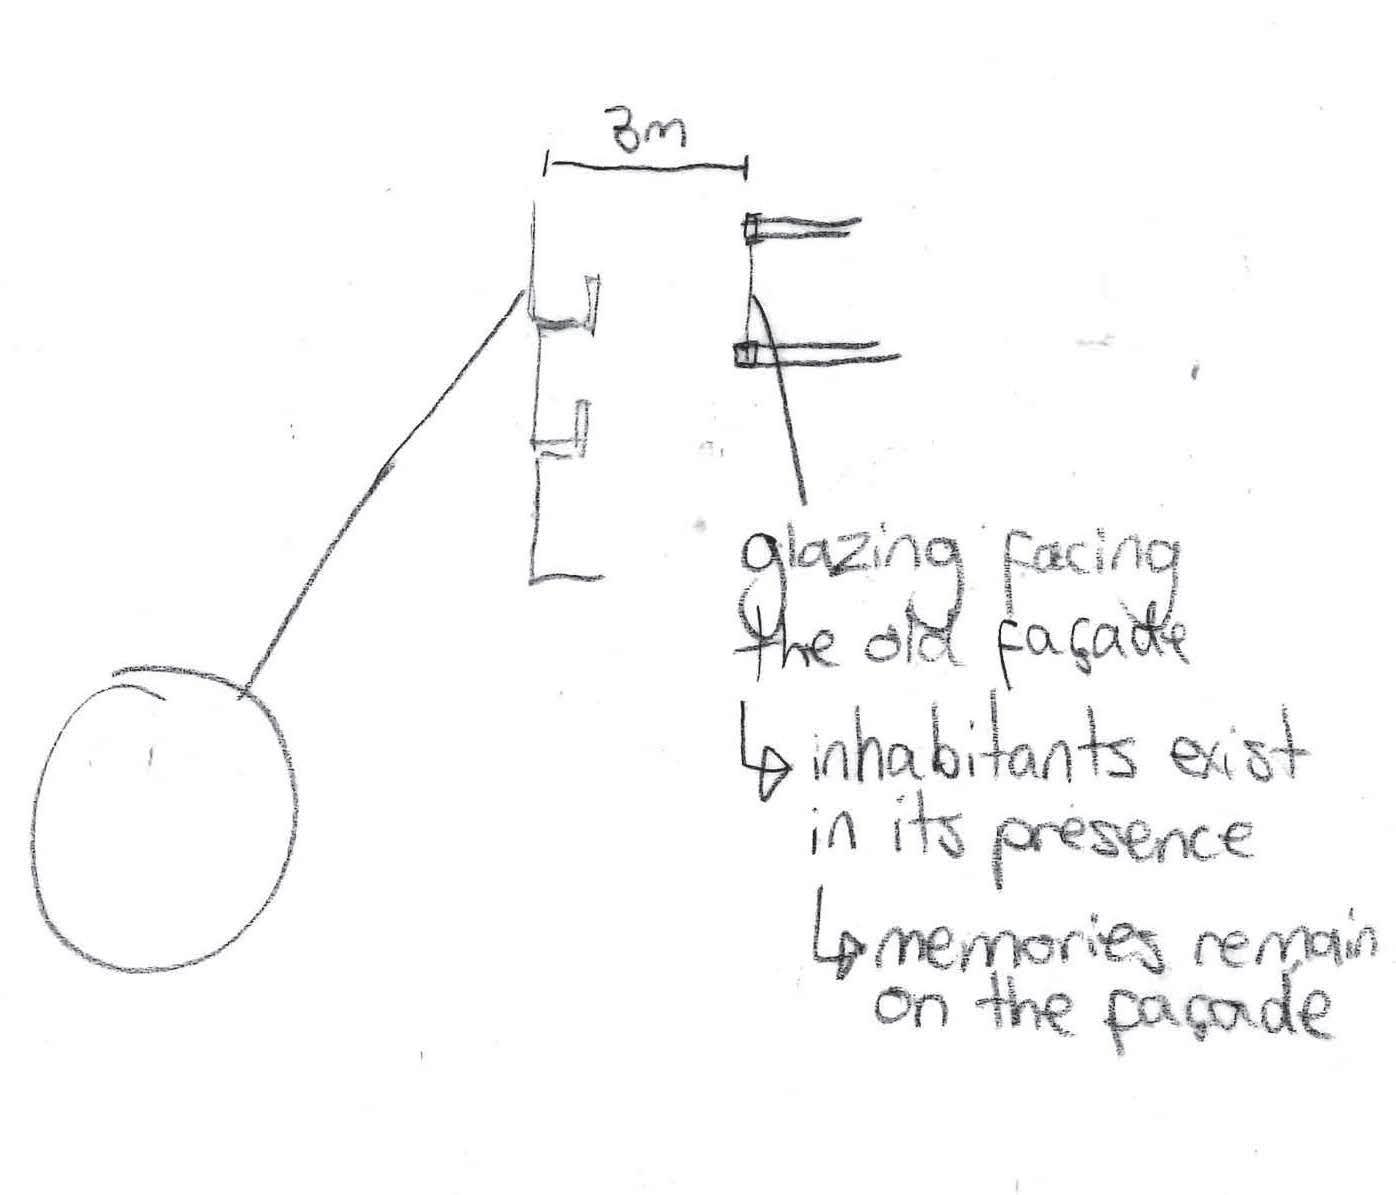 3m
glazing facing
the old façade
inhabitants exist
in its presence
memories remain
on the façade